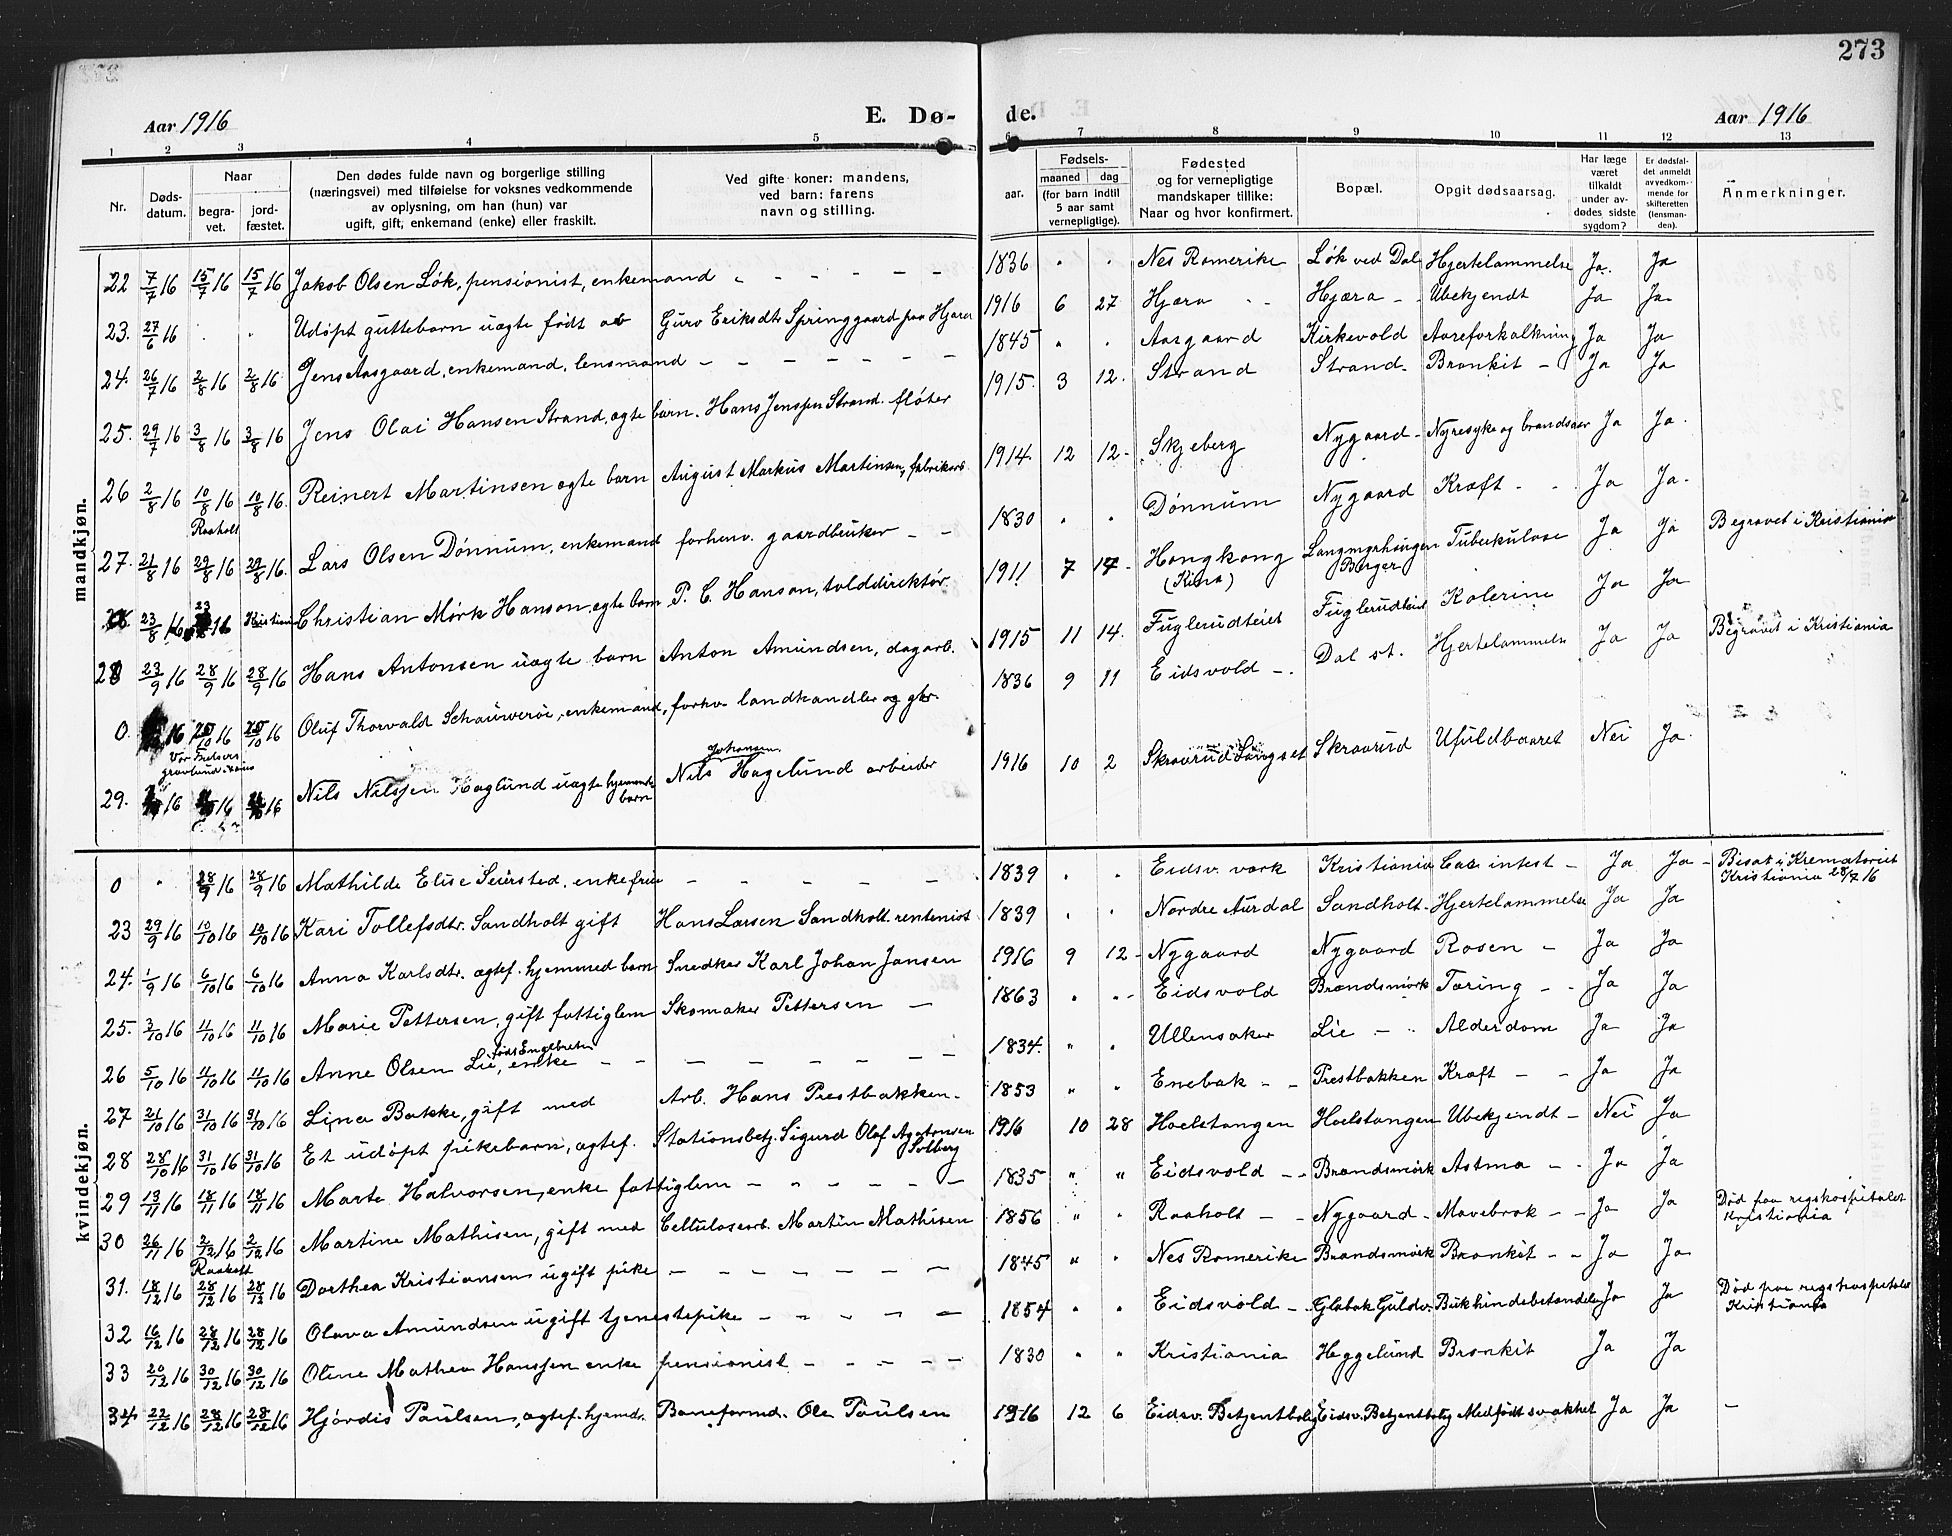 273
Aar 1916
E. Dø-
de.
Aar 1916
1 2 3 4 5 6 7 8 9 10 11 12 13
Nr.
Døds-
datum.
Naar
begra-
vet.
jord-
fæstet.
Den dødes fulde navn og borgerlige stilling
(næringsvei) med tilføielse for voksnes vedkommende
av oplysning, om han (hun) var
ugift, gift, enkemand (enke) eller fraskilt.
Ved gifte koner: mandens,
ved barn: farens
navn og stilling.
aar.
Fødsels-
maaned dag
(for barn indtil
5 aar samt
vernepligtige).
Fødested
og for vernepligtige
mandskaper tillike:
Naar og hvor konfirmert.
Bopæl.
Opgit dødsaarsag.
Har læge
været
tilkaldt
under av-
dødes sidste
sygdom?
Er dødsfal-
det anmeldt
av vedkom-
mende for
skifteretten
(lensman-
den).
Anmerkninger.
mandkjøn.
22 7/7 16 15/7 16 15/7 16 Jakob Olsen Løk, pensionist, enkemand 1836 Nes Romerike Løk ved Dal Hjertelammelse Ja Ja
23. 27/6 16 Udøpt guttebarn uægte født av Guro Eriksdtr Springgaard paa Hjæra 1916 6 27 Hjæra Hjæra Ubekjendt Ja Ja
24. 26/7 16 2/8 16 2/8 16 Jens Aasgaard, enkemand, lensmand 1845 Aasgaard Kirkevold Aareforkalkning Ja Ja
25. 29/7 16 3/8 16 3/8 16 Jens Olai Hansen Strand, ægte barn. Hans Jenssen Strand. fløter 1915. 3 12. Strand Strand. Bronkit Ja Ja
26 2/8 16 10/8 16 10/8 16 Reinert Martinsen ægte barn August Markus Martinsen, fabrikarb. 1914. 12 12 Skjeberg Nygaard Nyresyke og brandsaar Ja Ja.
Raaholt
27. 21/8 16 29/8 16 29/8 16. Lars Olsen Dønnum, enkemand forhenv. gaardbruker 1830 Dønnum Nygaard Kræft Ja Ja
23/8 16 Kristiania Christian Mørk Hanson, ægte barn P. C. Hanson, tolddirektør 1911 7 17 Hongkong
(Kina) Tuberkulose Ja Ja Begravet i Kristiania
28 23/9 16 28/9 16 28/9 16 Hans Antonsen uægte barn Anton Amundsen, dagarb. 1915 11 14. Fuglerudteiet Fuglerudteiet Kolerine Ja Ja
0. 16 25/10 16 25/10 16 Oluf Thorvald enkemand, forhv. landhandler og gbr. 1836 9 11 Eidsvold Dal st. Hjertelammelse Ja Ja Begravet i Kristiania
Vor Frelsers
29. 16 16 16 Nils Nilssen Haglund uægte hjemmedr.
barn Nils Johansen Hagelund arbeider 1916 10 2 Skraarud Langset Skraarud Ufuldbaaret Nei Ja.
kvindekjøn.
0 28/9 16 28/9 16 Mathilde Elise Seiersted. enkefrue 1839 Eidsv. værk Kristiania Cac intest Ja Ja Bisat i Krematoriet
Kristiania 28/7 16
23 29/9 16 10/10 16 10/10 16 Kari Tollefsdtr. Sandholt gift Hans Larsen Sandholt. rentenist 1839 Nordre Aurdal Sandholt Hjertelammelse Ja Ja
24. 1/9 16 6/10 16 6/10 16 Anna Karlsdtr. ægtef. hjemmed barn Snedker Karl Johan Jansen 1916 9 12 Nygaard Nygaard Rosen Ja Ja
25. 3/10 16 11/10 16 11/10 16 Marie Pettersen, gift fattiglem Skomaker Pettersen 1863 Eidsvold Brændsmörk Tæring Ja Ja
26 5/10 16 11/10 16 11/10 16 Anne Olsen Lie, født Engebretsn enke 1834. Ullensaker Lie Alderdom Ja Ja
27 21/10 16 31/10 16 31/10 16 Lina Bakke, gift med Arb. Hans Prestbakken. 1853 Enebak Prestbakken Kræft Ja Ja
28 28/10 16 31/10 16 31/10 16 Et udøpt pikebarn, ægtef. Stationsbetj. Sigurd Olaf Solberg 1916 10 28 Hoelstangen Hoelstangen Ubekjendt Nei Ja
29 13/11 16 18/11 16 18/11 16 Marte Halvorsen, enke fattiglem 1835 Eidsvold Brændsmörk Astma Ja Ja
30 26/11 16 2/12 16 2/12 16 Martine Mathisen, gift med Cellulosearb. Martin Mathisen 1856 Raaholt Nygaard Mavebrok Ja Ja Død paa rigshospitalet
Kristiania
Raaholt
31. 18/12 16 28/12 16 28/12 16 Dorthea Kristiansen ugift pike 1845 Nes Romerike Brændsmörk Bronkit Ja Ja
32 16/12 16 28/12 16 28/12 16 Olava Amundsen ugift tjenestepike 1854 Eidsvold Glabak Guldv. Bukhindebetændelse Ja Ja Død paa rigshospitalet
Kristiania
33 20/12 16 30/12 16 30/12 16 Oline Mathea Hanssen enke pensionist 1830 Kristiania Heggelund Bronkit Ja Ja
34 22/12 16 28/12 16 28/12 16 Hjørdis Paulsen, ægtef. hjemdr. Baneformd. Ole Paulsen 1916 12 6 Eidsv. Betjentbolig Eidsv. Betjentbolig Medfødt svakhet Ja Ja